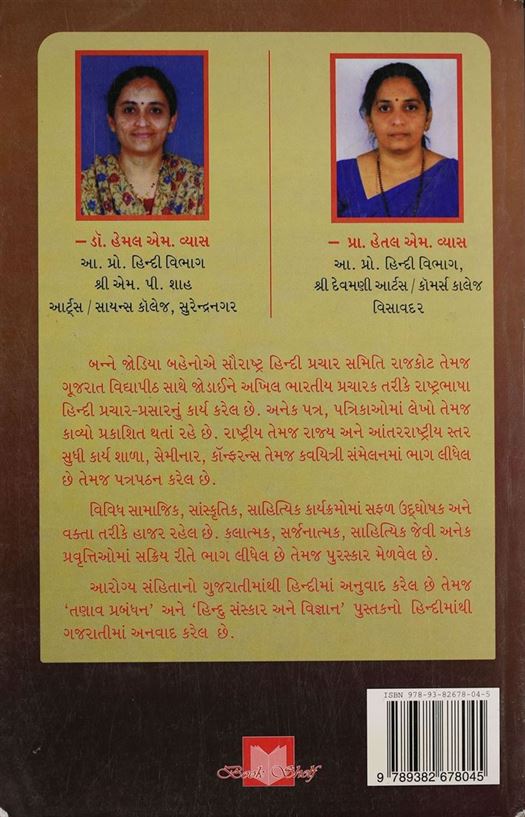 – ડૉ. હેમલ એમ. વ્યાસ
આ. પ્રો. હિન્દી વિભાગ
શ્રી એમ. પી. શાહ
આર્ટ્સ / સાયન્સ કૉલેજ, સુરેન્દ્રનગર
– પ્રા. હેતલ એમ. વ્યાસ
આ. પ્રો. હિન્દી વિભાગ,
શ્રી દેવમણી આર્ટસ / કોમર્સ કાલેજ
વિસાવદર
બન્ને જોડિયા બહેનોએ સૌરાષ્ટ્ર હિન્દી પ્રચાર સમિતિ રાજકોટ તેમજ
ગૂજરાત વિદ્યાપીઠ સાથે જોડાઈને અખિલ ભારતીય પ્રચારક તરીકે રાષ્ટ્રભાષા
હિન્દી પ્રચાર-પ્રસારનું કાર્ય કરેલ છે. અનેક પત્ર, પત્રિકાઓમાં લેખો તેમજ
કાવ્યો પ્રકાશિત થતાં રહે છે. રાષ્ટ્રીય તેમજ રાજ્ય અને આંતરરાષ્ટ્રીય સ્તર
સુધી કાર્ય શાળા, સેમીનાર, કૉન્ફરન્સ તેમજ કવયિત્રી સંમેલનમાં ભાગ લીધેલ
છે તેમજ પત્રપઠન કરેલ છે.
વિવિધ સામાજિક, સાંસ્કૃતિક, સાહિત્યિક કાર્યક્રમોમાં સફળ ઉદ્ઘોષક અને
વક્તા તરીકે હાજર રહેલ છે. કલાત્મક, સર્જનાત્મક, સાહિત્યિક જેવી અનેક
પ્રવૃત્તિઓમાં સક્રિય રીતે ભાગ લીધેલ છે તેમજ પુરસ્કાર મેળવેલ છે.
આરોગ્ય સંહિતાનો ગુજરાતીમાંથી હિન્દીમાં અનુવાદ કરેલ છે તેમજ
‘તણાવ પ્રબંધન’ અને ‘હિન્દુ સંસ્કાર અને વિજ્ઞાન’ પુસ્તકનો હિન્દીમાંથી
ગુજરાતીમાં અનુવાદ કરેલ છે.
ISBN 978-93-82678-04-5
9 789382 678045
Book Shelf